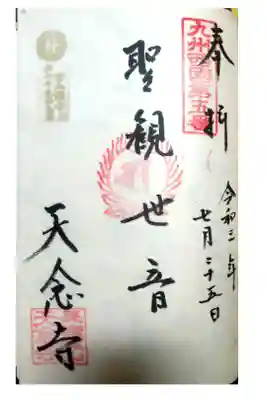 奉拝
九州西国第五番
令和三年
七月二十五日
聖観世音
天念寺